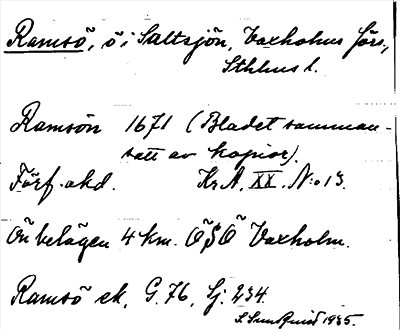 Ramsö, ö i Saltsjön, Vaxholms förs.,
Sthlms l.
Ramsön 1671 (Bladet samman-
satt av kopior).
Förf. akd. Kr A. XX. N:o 13.
Ön belägen 4 km. ÖSÖ Vaxholm.
Ramsö ek. G. 76, Sj. 234.
1935.